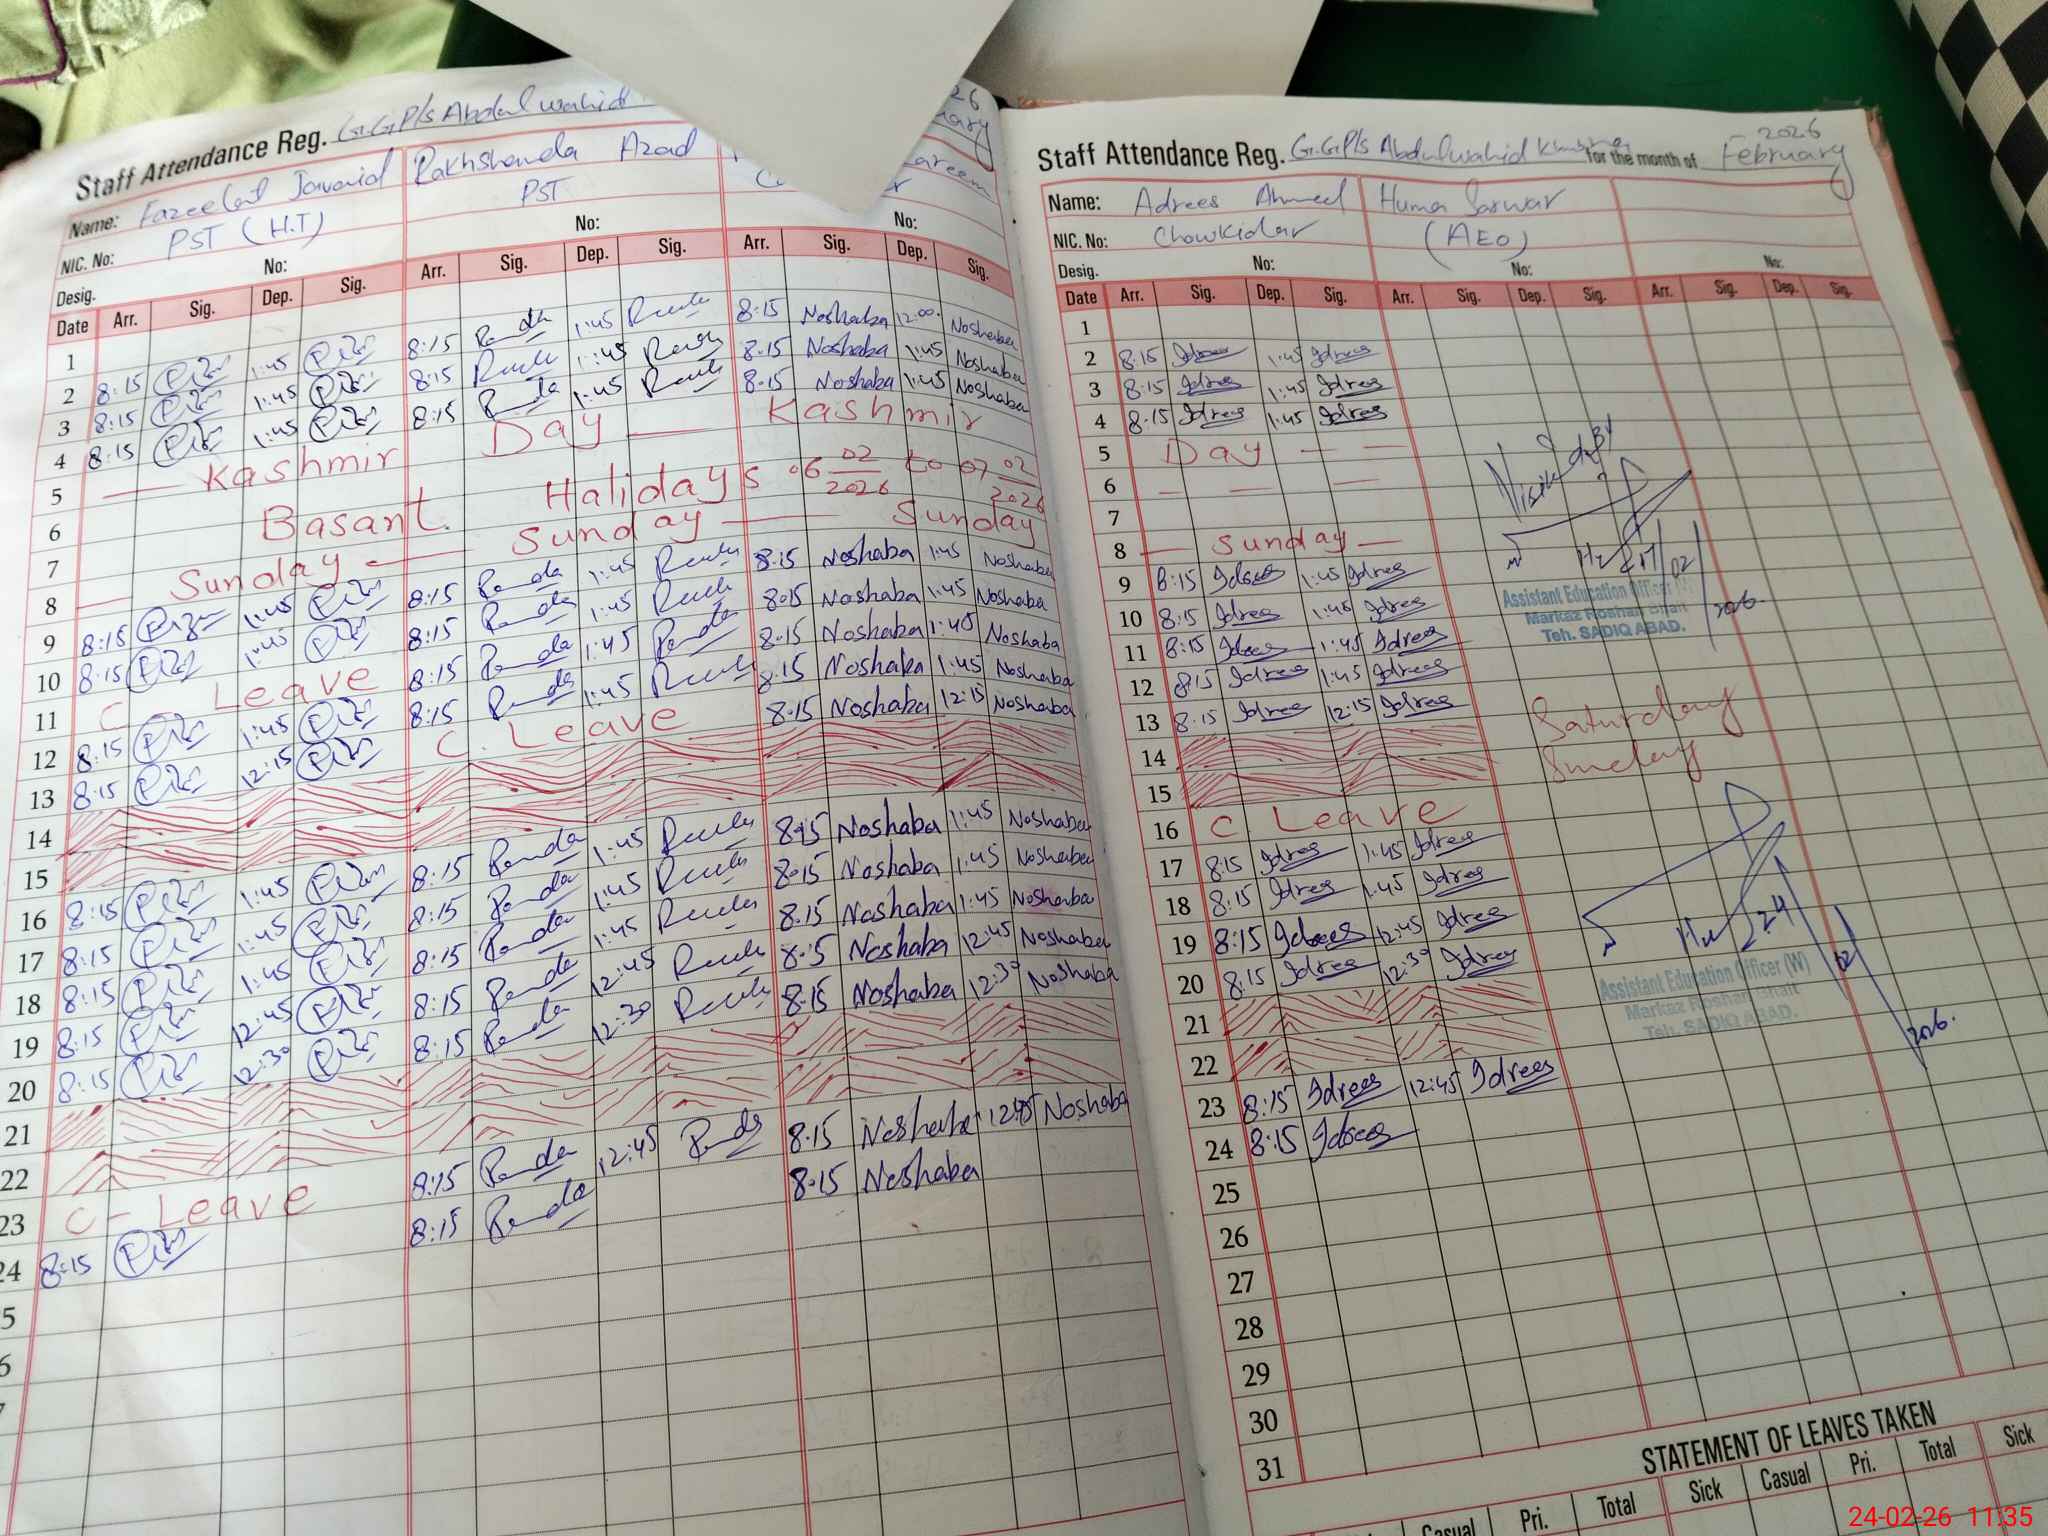 Staff Attendance Reg. G.G.P/s Abdul wahid
Name: Fazeelat Javaid Rakhshanda Azad areem
NIC. No: PST (H.T) PST
Desig. No: No: No:
Date Arr. Sig. Dep. Sig. Arr. Sig. Dep. Sig. Arr. Sig. Dep. Sig.
1
2 8:15 1:45 8:15 1:45 8:15 Noshaba 12:00 Noshaba
3 8:15 1:45 8:15 1:45 8:15 Noshaba 1:45 Noshaba
4 8:15 1:45 8:15 1:45 8:15 Noshaba 1:45 Noshaba
5 Kashmir Day Kashmir
6 Basant Halidays 06 02/2026 to 07 02/2026
7
8 Sunday Sunday Sunday
9 8:15 1:45 8:15 1:45 8:15 Noshaba 1:45 Noshaba
10 8:15 1:45 8:15 1:45 8:15 Noshaba 1:45 Noshaba
11 C. Leave 8:15 1:45 8:15 Noshaba 1:45 Noshaba
12 8:15 1:45 8:15 1:45 8:15 Noshaba 1:45 Noshaba
13 8:15 12:15 C. Leave 8:15 Noshaba 12:15 Noshaba
14
15
16 8:15 1:45 8:15 1:45 8:15 Noshaba 1:45 Noshaba
17 8:15 1:45 8:15 1:45 8:15 Noshaba 1:45 Noshaba
18 8:15 1:45 8:15 1:45 8:15 Noshaba 1:45 Noshaba
19 8:15 12:45 8:15 12:45 8:15 Noshaba 12:45 Noshaba
20 8:15 12:30 8:15 12:30 8:15 Noshaba 12:30 Noshaba
21
22
23 C - Leave 8:15 12:45 8:15 Noshaba 12:45 Noshaba
24 8:15 8:15 8:15 Noshaba
5
6
7
Staff Attendance Reg. G.G.P/s Abdul wahid for the month of February 2026
Name: Adrees Ahmed Huma Sarwar
NIC. No: Chowkidar (AEO)
Desig. No: No: No:
Date Arr. Sig. Dep. Sig. Arr. Sig. Dep. Sig. Arr. Sig. Dep. Sig.
1
2 8:15 Idrees 1:45 Idrees
3 8:15 Idrees 1:45 Idrees
4 8:15 Idrees 1:45 Idrees
5 Day
6
7
8 Sunday
9 8:15 Idrees 1:45 Idrees
10 8:15 Idrees 1:45 Idrees
Assistant Education Officer (W)
Markaz Roshan Bhait
Teh. SADIQ ABAD.
2026
11 8:15 Idrees 1:45 Idrees
12 8:15 Idrees 1:45 Idrees
13 8:15 Idrees 12:15 Idrees
14 Saturday
15 Sunday
16 C Leave
17 8:15 Idrees 1:45 Idrees
18 8:15 Idrees 1:45 Idrees
19 8:15 Idrees 12:45 Idrees
20 8:15 Idrees 12:30 Idrees
24/02/2026.
Assistant Education Officer (W)
Markaz Roshan Bhait
Teh. SADIQ ABAD.
21
22
23 8:15 Idrees 12:45 Idrees
24 8:15 Idrees
25
26
27
28
29
30
31
STATEMENT OF LEAVES TAKEN
Casual Pri. Total Sick Casual Pri. Total Sick
24-02-26 11:35